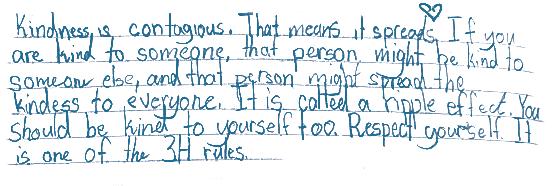 Kindness is contagious. That means it spreads. If you
are kind to someone, that person might be kind to
someone else, and that person might spread the
kindess to everyone. It is called a ripple effect. You
should be kind to yourself too. Respect yourself. It
is one of the 3H rules.